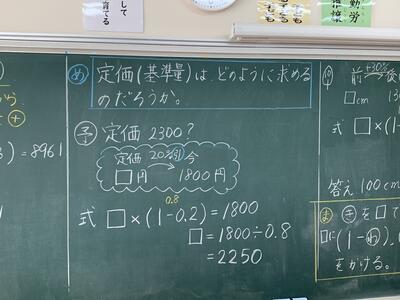 して
育てる
でも
でも
勤労
推譲
から
と+
3)=8961
め 定価(基準量)は、どのように求める
のだろうか。
予 定価 2300?
定価 20%引 今
□円 → 1800円
0.8
式 □×(1-0.2)=1800
□=1800÷0.8
=2250
前 +30% 後
□cm 130
式 □×(1
答え 100cm
ま もを□で
□に(1-わ)
をかける。